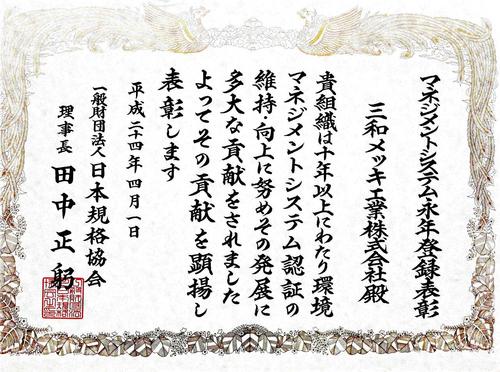 マネジメントシステム永年登録表彰
三和メッキ工業株式会社殿
貴組織は十年以上にわたり環境
マネジメントシステム認証の
維持・向上に努めその発展に
多大な貢献をされました
よってその貢献を顕揚し
表彰します
平成二十四年四月一日
一般財団法人日本規格協会
理事長 田中正躬